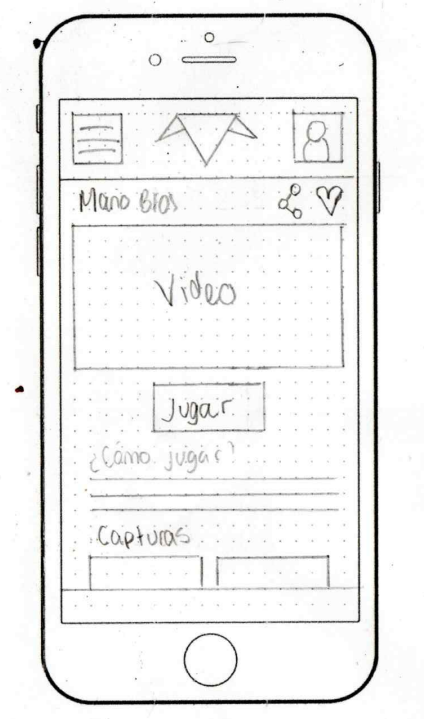 Mario Bros
Video
Jugar
¿Cómo jugar?
Capturas